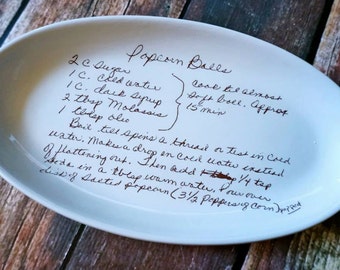 Popcorn Balls
2 C Sugar
1 C. Cold water
1 C. dark Syrup
2 tbsp Molasses
1 tbsp oleo
Cook til almost
Soft boil. Approx
15 min
Boil till spins a thread or test in Cold
water. Makes a drop en cold water instead
of flattening out. Then add 1/4 tsp
soda in a tbsp warm water. Pour over
dish of Salted popcorn (3 1/2 Poppers of Corn) mixed